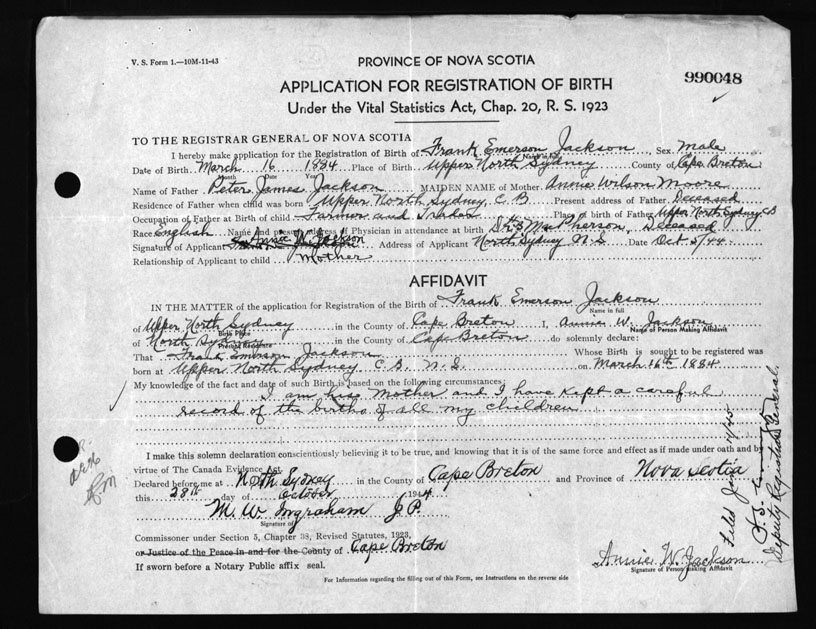 V. S. Form 1.—10M-11-43
PROVINCE OF NOVA SCOTIA
990048
APPLICATION FOR REGISTRATION OF BIRTH
Under the Vital Statistics Act, Chap. 20, R. S. 1923
TO THE REGISTRAR GENERAL OF NOVA SCOTIA
I hereby make application for the Registration of Birth of Frank Emerson Jackson Sex Male
Name in full
Date of Birth March 16 1884 Place of Birth Upper North Sydney County of Cape Breton
Month Date Year
Name of Father Peter James Jackson MAIDEN NAME of Mother Annie Wilson Moore
Residence of Father when child was born Upper North Sydney, C B Present address of Father Deceased
Occupation of Father at Birth of child Farmer and Trader Place of birth of Father Upper North Sydney CB
Race English Name and present address of Physician in attendance at birth MacPherson, Deceased
Signature of Applicant Annie W. Jackson Address of Applicant North Sydney N.S. Date Oct 2/44
Relationship of Applicant to child Mother
AFFIDAVIT
IN THE MATTER of the application for Registration of the Birth of Frank Emerson Jackson
Name in full
of Upper North Sydney in the County of Cape Breton I, Annie W. Jackson
Birth Place Name of Person Making Affidavit
of North Sydney in the County of Cape Breton do solemnly declare:
Present Residence
That Frank Emerson Jackson Whose Birth is sought to be registered was
born at Upper North Sydney C.B. N.S. on March 16th 1884
My knowledge of the fact and date of such Birth is based on the following circumstances:
I am his Mother and I have kept a careful
record of the births of all my children
I make this solemn declaration conscientiously believing it to be true, and knowing that it is of the same force and effect as if made under oath and by
virtue of The Canada Evidence Act.
Declared before me at North Sydney in the County of Cape Breton and Province of Nova Scotia
this 28th day of October 1944
M. W. Ingraham J.P.
Signature of
Commissoner under Section 5, Chapter 38, Revised Statutes, 1923,
or Justice of the Peace in and for the County of Cape Breton
If sworn before a Notary Public affix seal.
Annie W. Jackson
Signature of Person Making Affidavit
For Information regarding the filling out of this Form, see Instructions on the reverse side
Filed Jan
Deputy Registrar General.